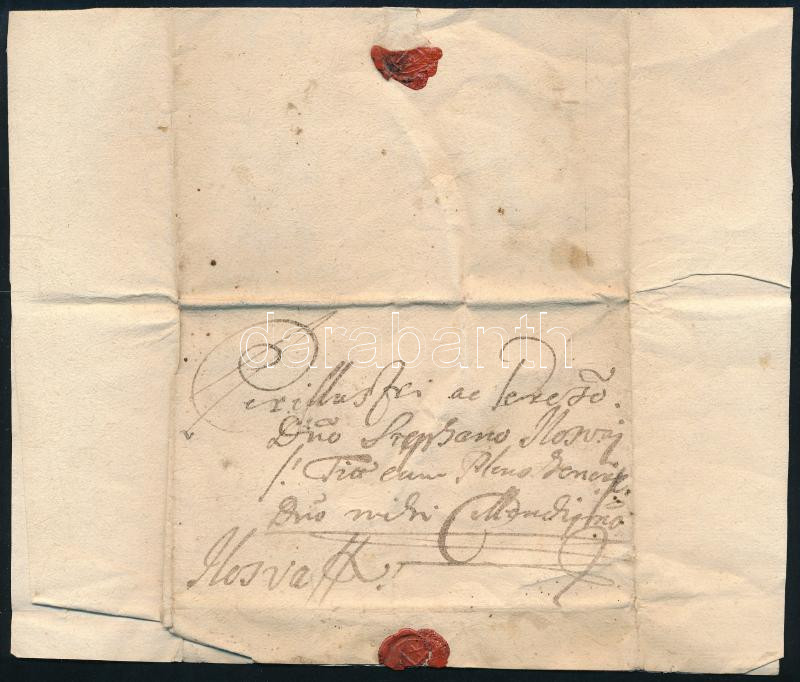 darabanth
Perillustri ac Generoso.
Dño Stephano Ilosvaj
/: Tit. cum Pleno Gener.
Dño mihi Colendissimo
Ilosva